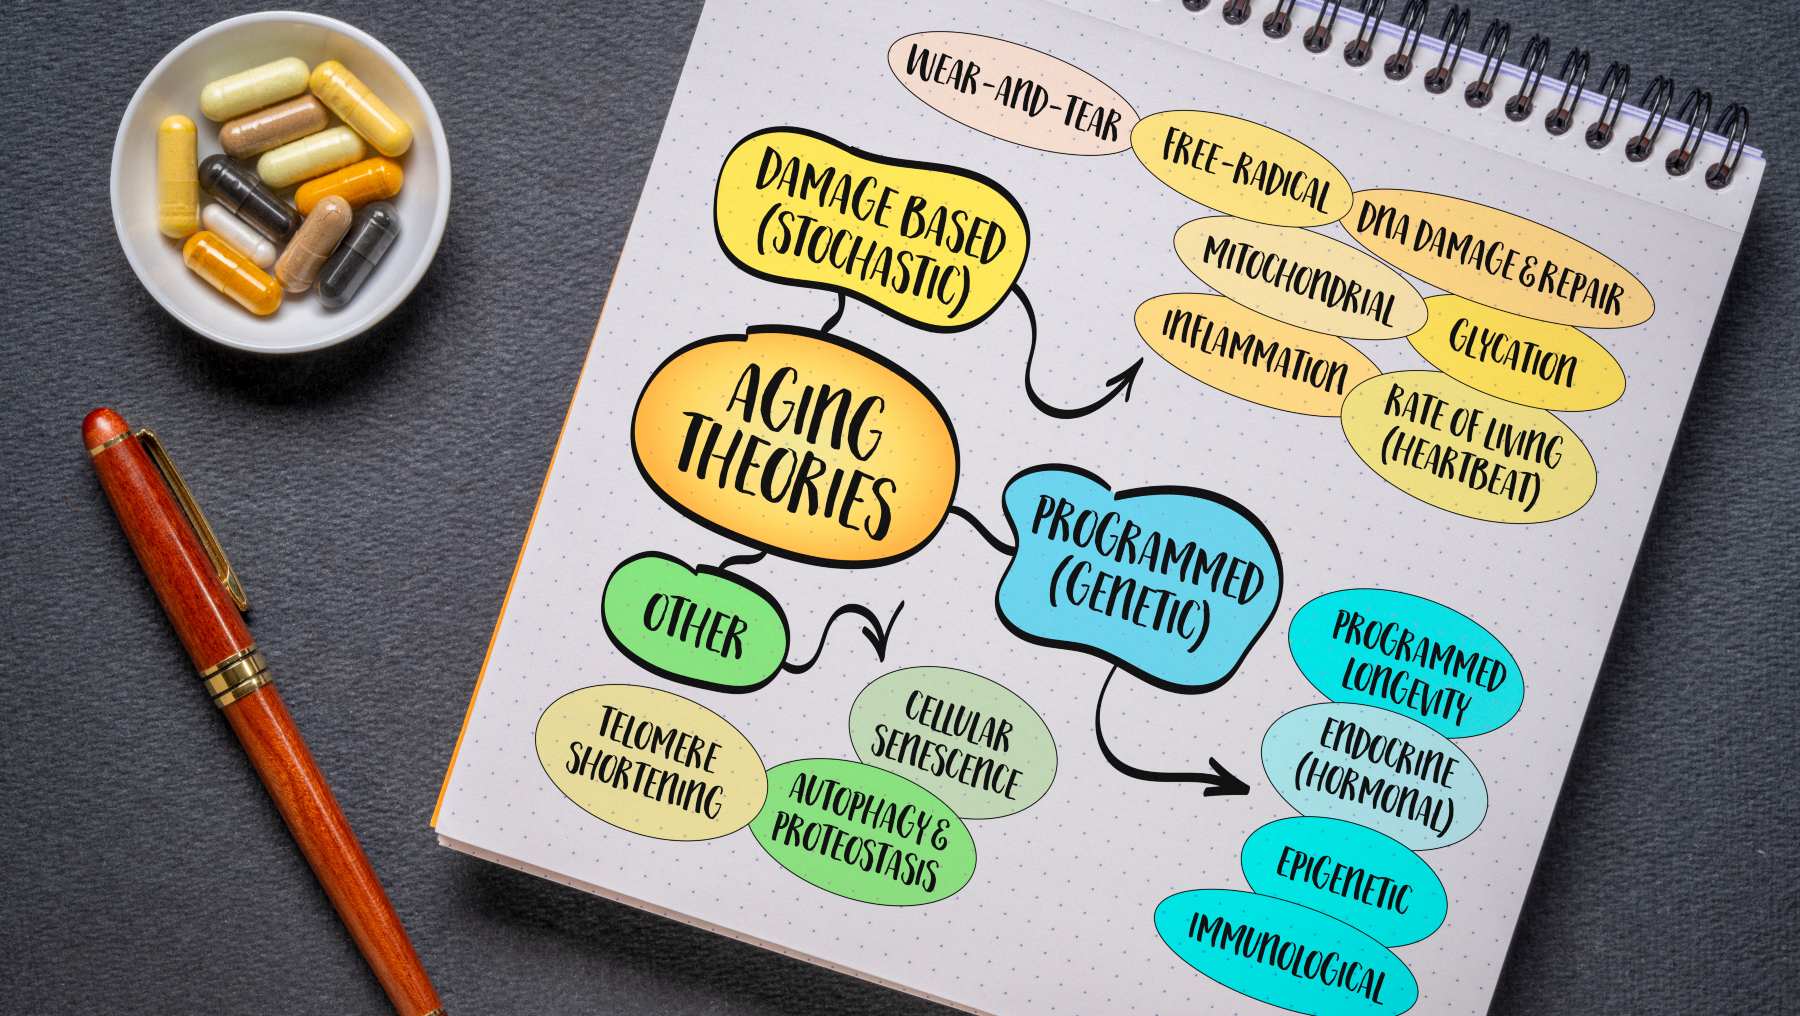 WEAR-AND-TEAR
FREE-RADICAL
DNA DAMAGE & REPAIR
MITOCHONDRIAL
GLYCATION
INFLAMMATION
RATE OF LIVING
(HEARTBEAT)
DAMAGE BASED
(STOCHASTIC)
AGING
THEORIES
PROGRAMMED
(GENETIC)
PROGRAMMED
LONGEVITY
ENDOCRINE
(HORMONAL)
EPIGENETIC
IMMUNOLOGICAL
OTHER
CELLULAR
SENESCENCE
TELOMERE
SHORTENING
AUTOPHAGY &
PROTEOSTASIS